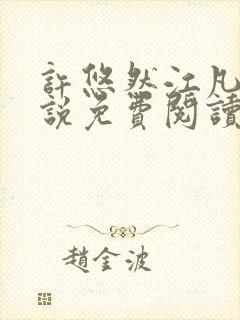 許悠然江凡
說免費閱讀
趙金波